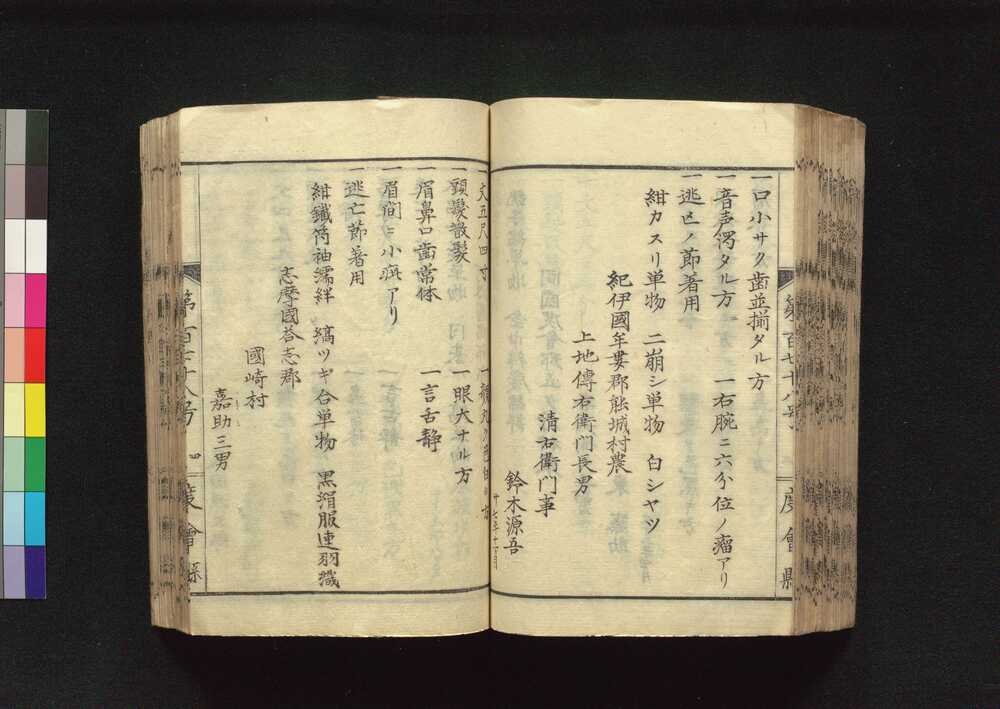 一口小サク歯並揃タル方
一音声濁タル方 一右腕ニ六分位ノ瘤アリ
一逃亡ノ節着用
紺カスリ単物 二崩シ単物 白シャツ
紀伊國牟婁郡 城村農
上地傳右衛門長男
清右衛門事
鈴木源吾
廿七年十一ヶ月
一丈五尺四寸
一頭髪散髪 一眼大ナル方
一眉鼻口歯常体 一言舌静
一眉間ニ小疵アリ
一逃亡節着用
紺織筒袖繻絆 縞ツギ合単物 黒絹服連羽織
志摩國答志郡
國崎村
嘉助三男
第百七十八号
度會縣
第百七十八号 四
度會縣